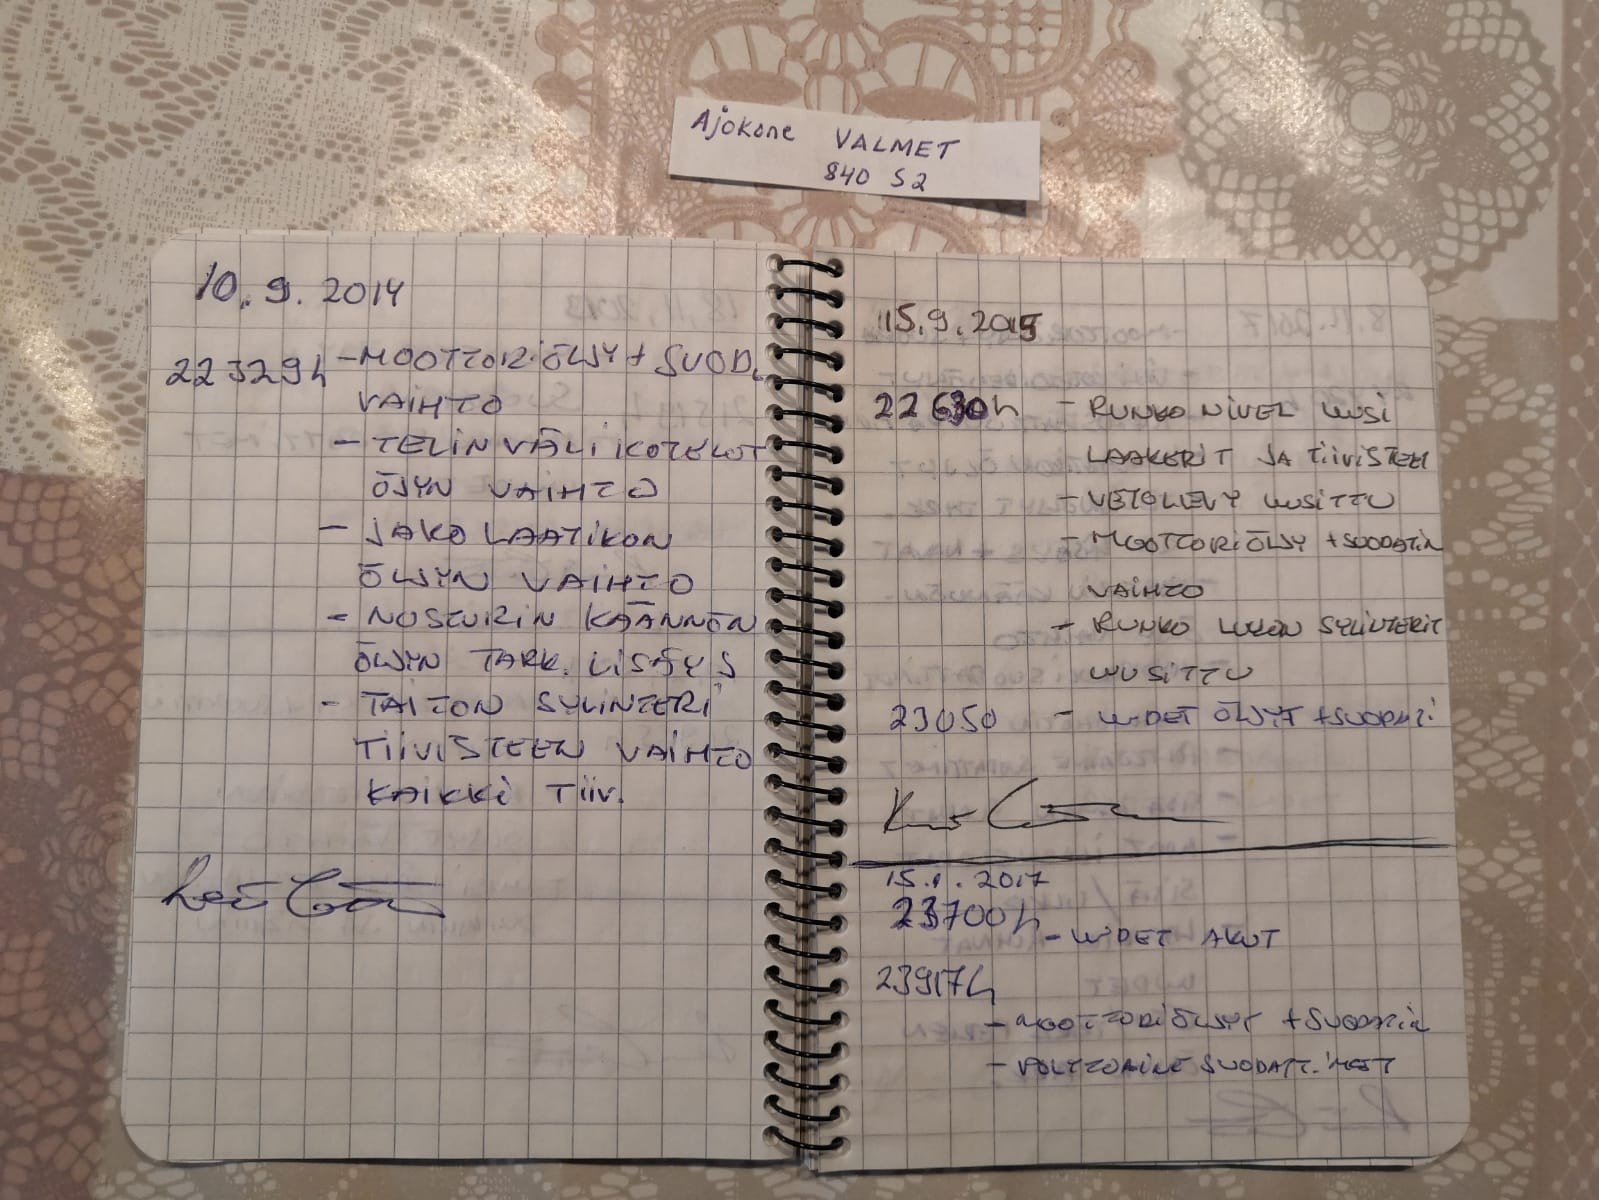 Ajokone VALMET
840 S2
10.9.2014
22329h - MOOTTORIÖLJY + SUOD.
VAIHTO
- TELIN VÄLIKOTELOT
ÖLJYN VAIHTO
- JAKOLAATIKON
ÖLJYN VAIHTO
- NOSTURIN KÄÄNNÖN
ÖLJYN TARK. LISÄYS
- TAITON SYLINTERI
TIIVISTEEN VAIHTO
KAIKKI TIIV.
15.9.2015
22630h - RUNKO NIVEL UUSI
LAAKERIT JA TIIVISTEET
- VETOLEVY UUSITTU
- MOOTTORIÖLJY + SUODATIN
VAIHTO
- RUNKO LUKON SYLINTERIT
UUSITTU
23050 - UUDET ÖLJYT + SUODATI
15.1.2017
23700h
- UUDET AKUT
23917h
- MOOTTORIÖLJYT + SUODATIN
- POLTTOAINE SUODATTIMET